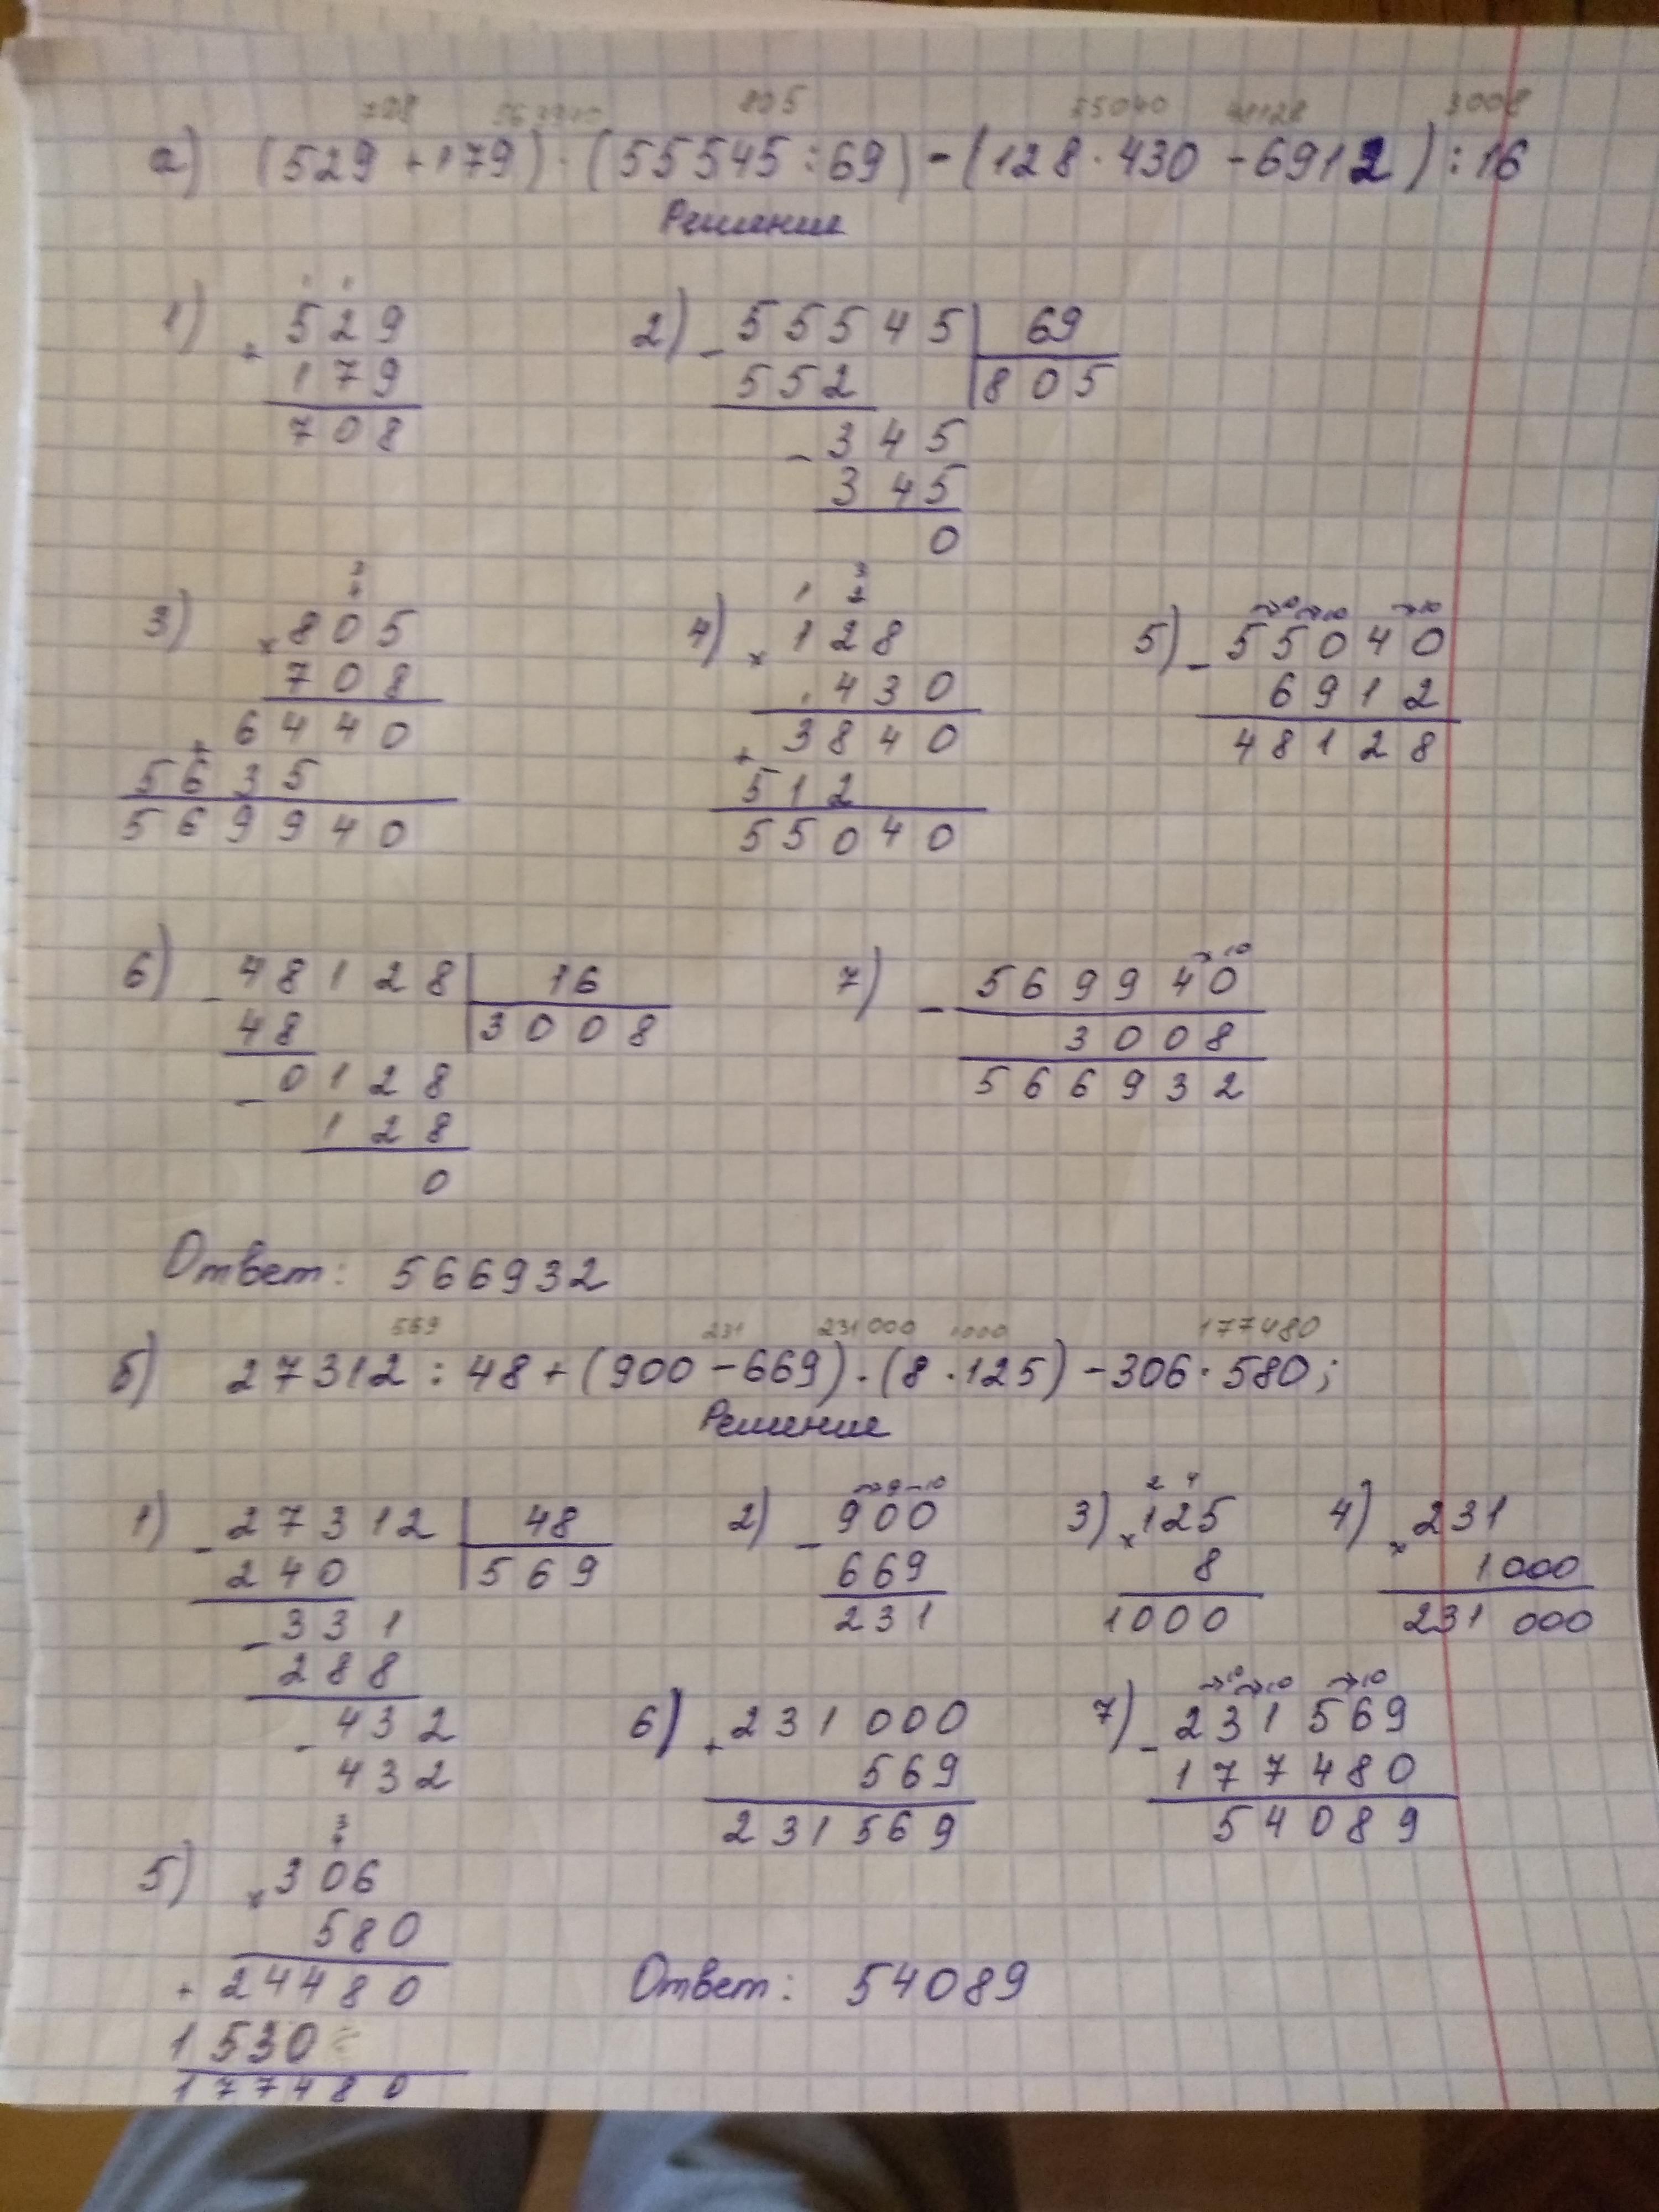 708 569940 805 55040 48128 3008
а) (529 + 179) · (55545 : 69) - (128 · 430 - 6912) : 16
Решение
1) 529
+ 179
708
2) - 55545 | 69
552 | 805
- 345
345
0
3) × 805
708
+ 6440
5635
569940
4) × 128
430
+ 3840
512
55040
5) - 55040
6912
48128
6) - 48128 | 16
48 | 3008
- 0128
128
0
7) - 569940
3008
566932
Ответ: 566932
569 231 231 000 1000 177480
б) 27312 : 48 + (900 - 669) · (8 · 125) - 306 · 580;
Решение
1) - 27312 | 48
240 | 569
- 331
288
- 432
432
2) - 900
669
231
3) × 125
8
1000
4) × 231
1000
231 000
5) × 306
580
+ 24480
1530
177480
6) + 231 000
569
231 569
7) - 231 569
177 480
54089
Ответ: 54089